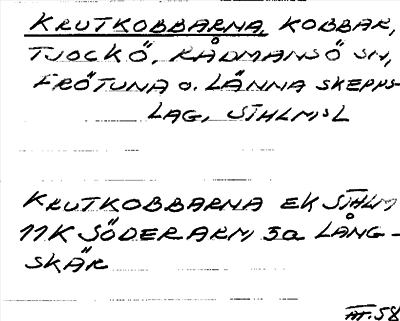 KRUTKOBBARNA, KOBBAR,
TJOCKÖ, RÅDMANSÖ SN,
FRÖTUNA O. LÄNNA SKEPPS-
LAG, STHLMSL
KRUTKOBBARNA EK STHLM
11K SÖDERARM 3a LÅNG-
SKÄR
58